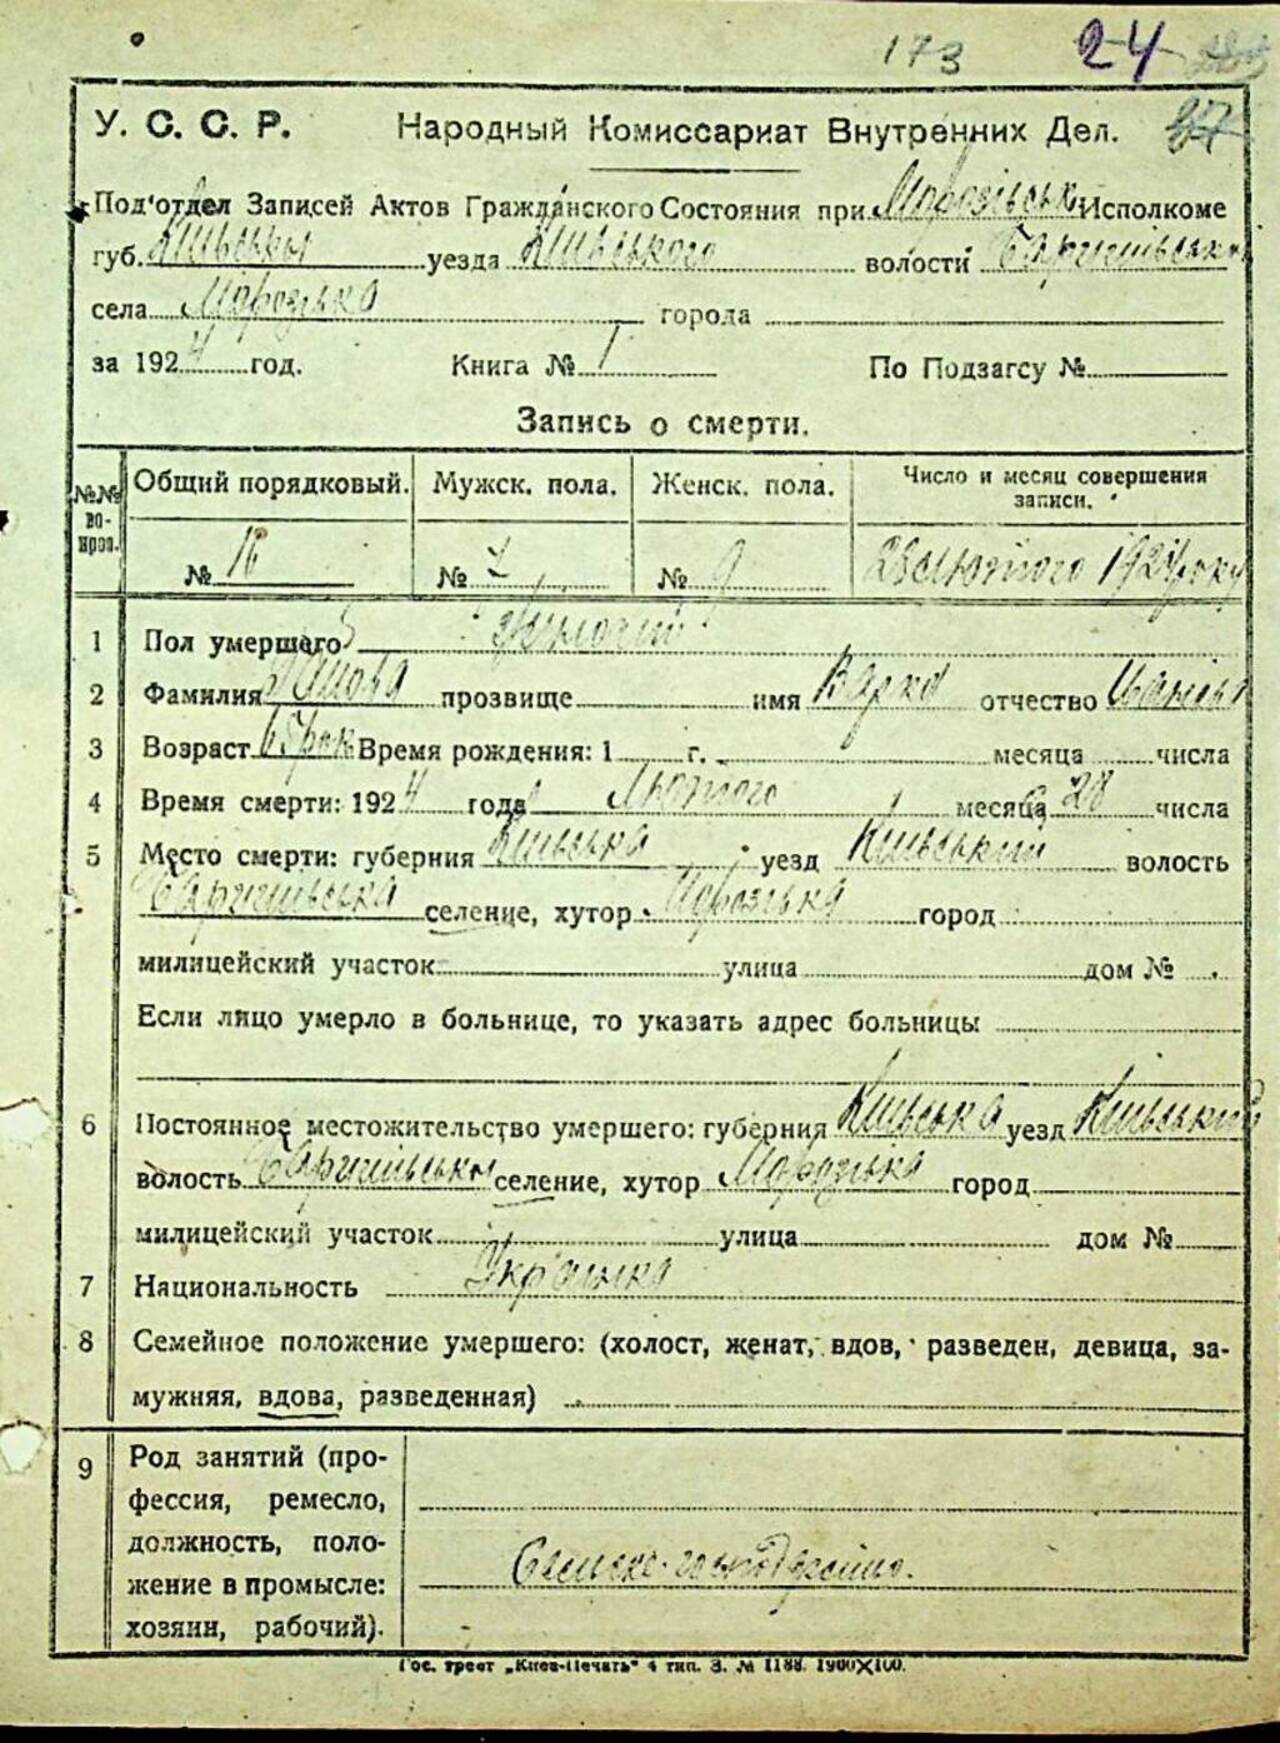 173 24
У. С. С. Р. Народный Комиссариат Внутренних Дел. 37
Под'отдел Записей Актов Гражданского Состояния при Морозівськ. Исполкоме
губ. Київськы уезда Київського волости Баришівської
села Морозівка города
за 1924 год. Книга № 1 По Подзагсу №
Запись о смерти.
№№ во-проо. Общий порядковый. Мужск. пола. Женск. пола. Число и месяц совершения записи.
№ 16 № 7 № 9 28 лютого 1924 року
1 Пол умершего жіночий
2 Фамилия прозвище имя Варка отчество Іванівна
3 Возраст 65 рок Время рождения: 1 г. месяца числа
4 Время смерти: 1924 года лютого месяца 28 числа
5 Место смерти: губерния Київська уезд Київський волость
Баришівська селение, хутор Морозівка город
милицейский участок улица дом №
Если лицо умерло в больнице, то указать адрес больницы
6 Постоянное местожительство умершего: губерния Київська уезд Київський
волость Баришівська селение, хутор Морозівка город
милицейский участок улица дом №
7 Национальность Українка
8 Семейное положение умершего: (холост, женат, вдов, разведен, девица, за-
мужняя, вдова, разведенная)
9 Род занятий (про-
фессия, ремесло,
должность, поло-
жение в промысле:
хозяин, рабочий).
Сельске-господарство.
Гос. трест „Киев-Печать" 4 тип. З. № 1188. 1900×100.